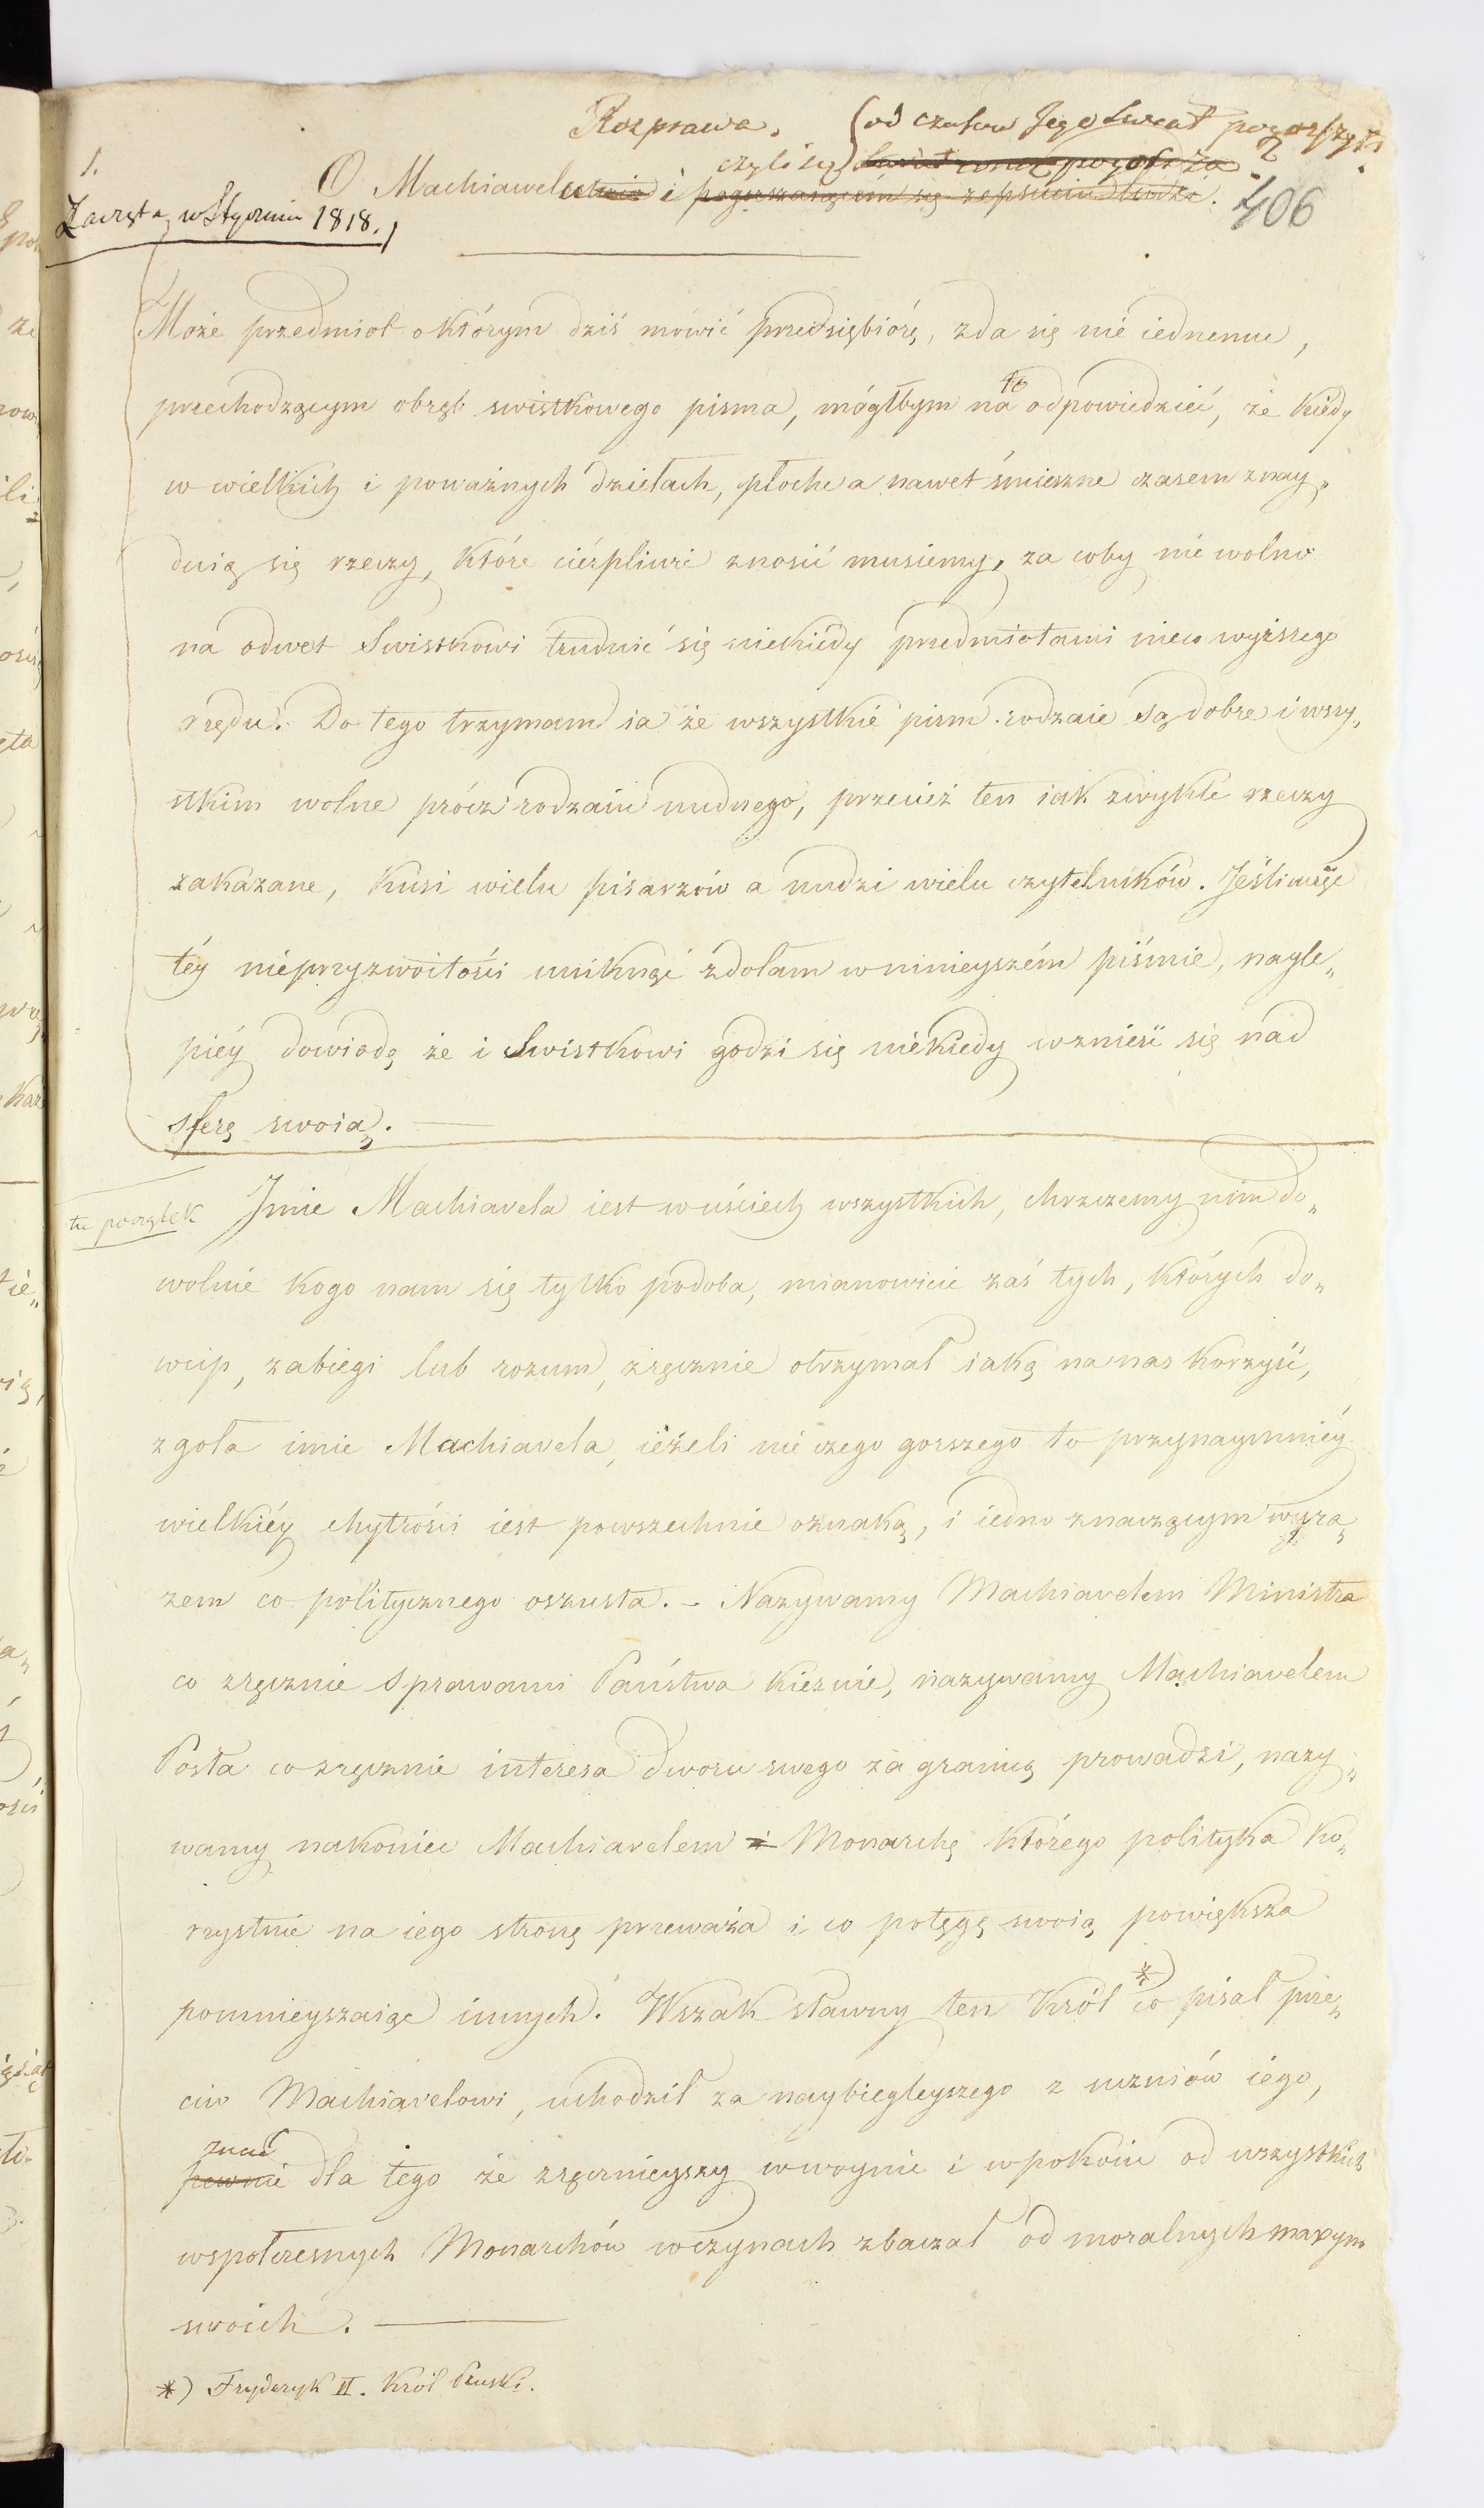 Rozprawa. (od czasów Jego świat pogorszył?
1.
czyli się świat coraz pogorsza.
O Machiawelu i pogorszającém się zepsuciu ludzi.
406
Zaczęta w Styczniu 1818.
Może przedmiot o którym dziś mówić przedsiębiorę, zda się nie iednemu,
przechodzącym obręb swistkowego pisma, mógłbym na to odpowiedzieć, że kiedy
w wielkich i poważnych dziełach, płoche a nawet śmieszne czasem znay„
duią się rzeczy, które cierpliwie znosić musiemy, za coby nie wolno
na odwet Swistkowi trudnić się niekiedy przedmiotami nieco wyższego
rzędu. Do tego trzymam ia że wszystkie pism rodzaie są dobre i wszy„
stkim wolne prócz rodzaiu nudnego, przecież ten iak zwykle rzeczy
zakazane, kusi wielu pisarzów a nudzi wielu czytelników. Jeśli więc
téy nieprzyzwoitości uniknąć zdołam w ninieyszém piśmie, nayle„
piéy dowiodę że i Swistkowi godzi się niekiedy wznieść się nad
sferę swoią.
tu początek
Imie Machiavela iest w uściech wszystkich, chrzczemy nim do„
wolnie kogo nam się tylko podoba, mianowicie zaś tych, których do„
wcip, zabiegi lub rozum, zręcznie otrzymał iaką na nas korzyść,
zgoła imie Machiavela, ieżeli nie czego gorszego to przynaymniéy
wielkiéy chytrości iest powszechnie oznaką, i iedno znaczącym wyra„
zem co politycznego oszusta. – Nazywamy Machiavelem Ministra
co zręcznie sprawami Państwa kieruie, nazywamy Machiavelem
Posła co zręcznie interesa dworu swego za granicą prowadzi, nazy„
wamy nakoniec Machiavelem i Monarchę którego polityka ko„
rzystnie na iego stronę przeważa i co potęgę swoią powiększa
pomnieyszaiąc innych. Wszak sławny ten Król *) co pisał prze„
ciw Machiavelowi, uchodził za naybiegleyszego z uczniów iego,
znać
pewnie dla tego że zręcznieyszy w woynie i w pokoiu od wszystkich
wspołczesnych Monarchów w czynach zbaczał od moralnych maxym
swoich.
*) Fryderyk II. Król Pruski.